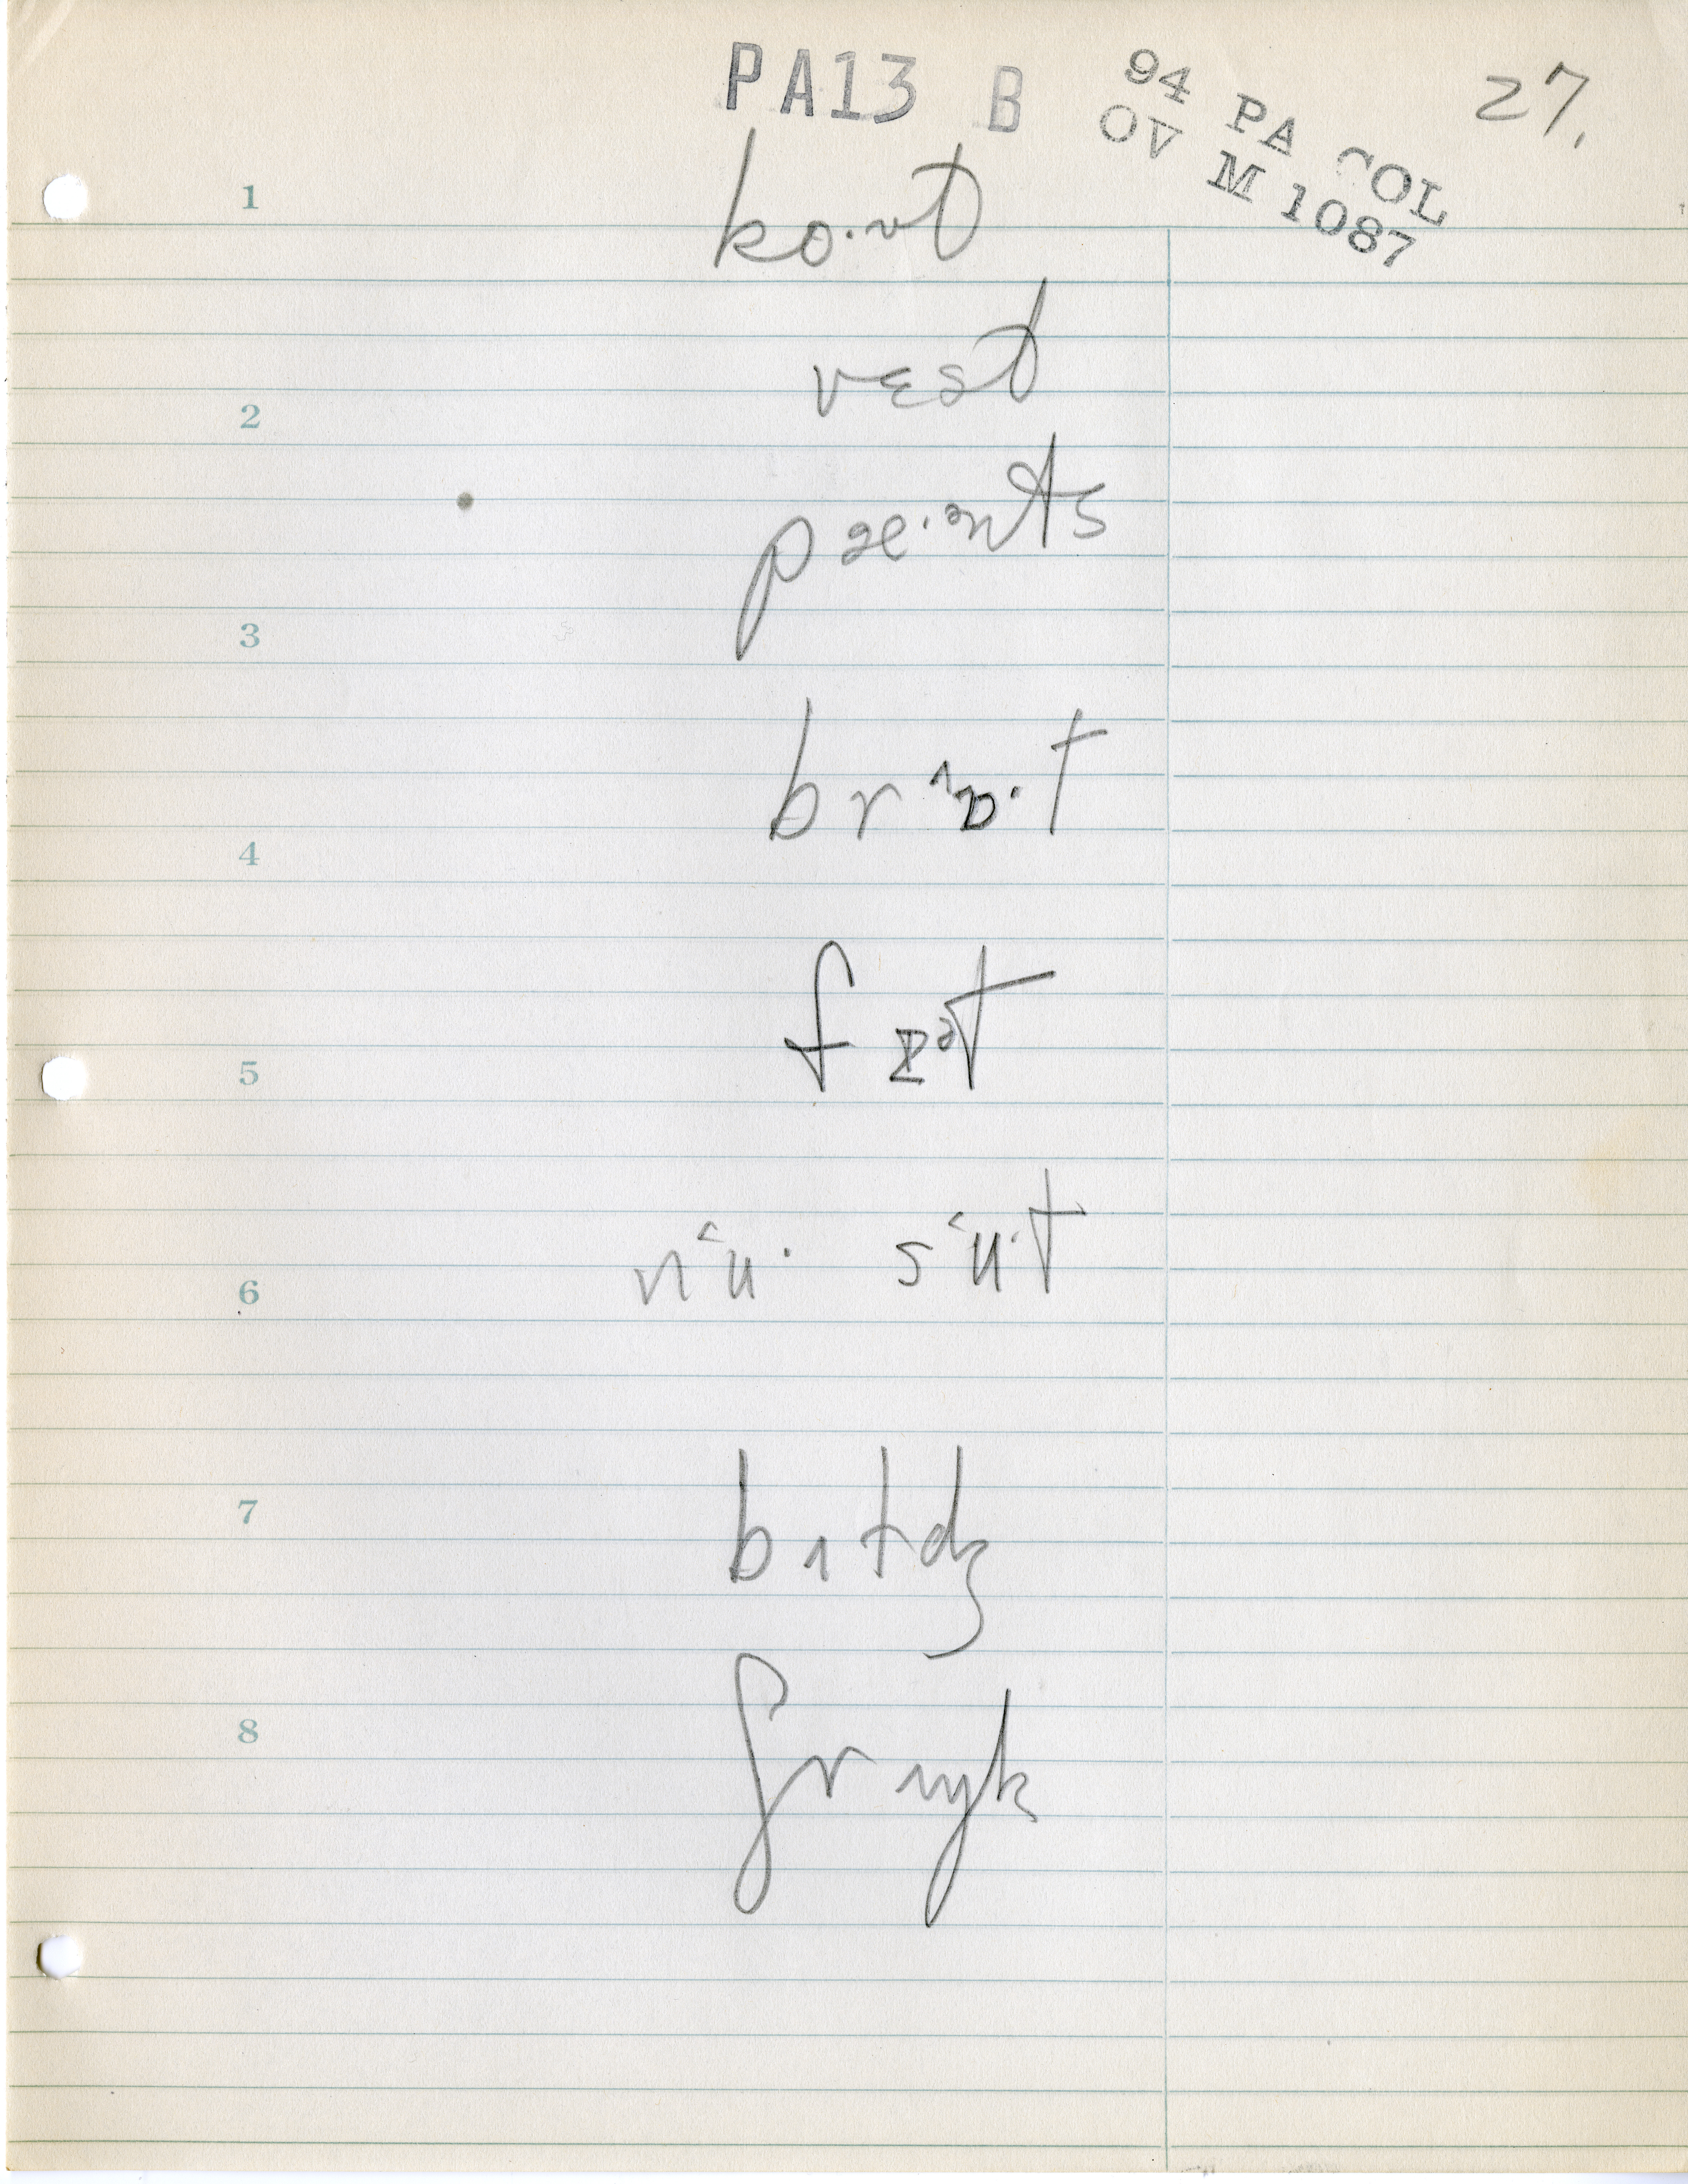 PA13 B
94 PA COL
OV M 1087
27.
1
ko·ʊt
vɛst
2
pæ·ənts
3
brɔ·t
4
fɪət
5
nʹu· sʹu·t
6
7
bɪtdʒ
8
ʃrɪŋk